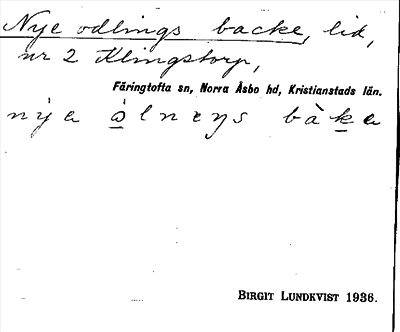 Nye odlings backe, lid,
nr 2 Klingstorp,
Färingtofta sn, Norra Åsbo hd, Kristianstads län.
BIRGIT LUNDKVIST 1936.